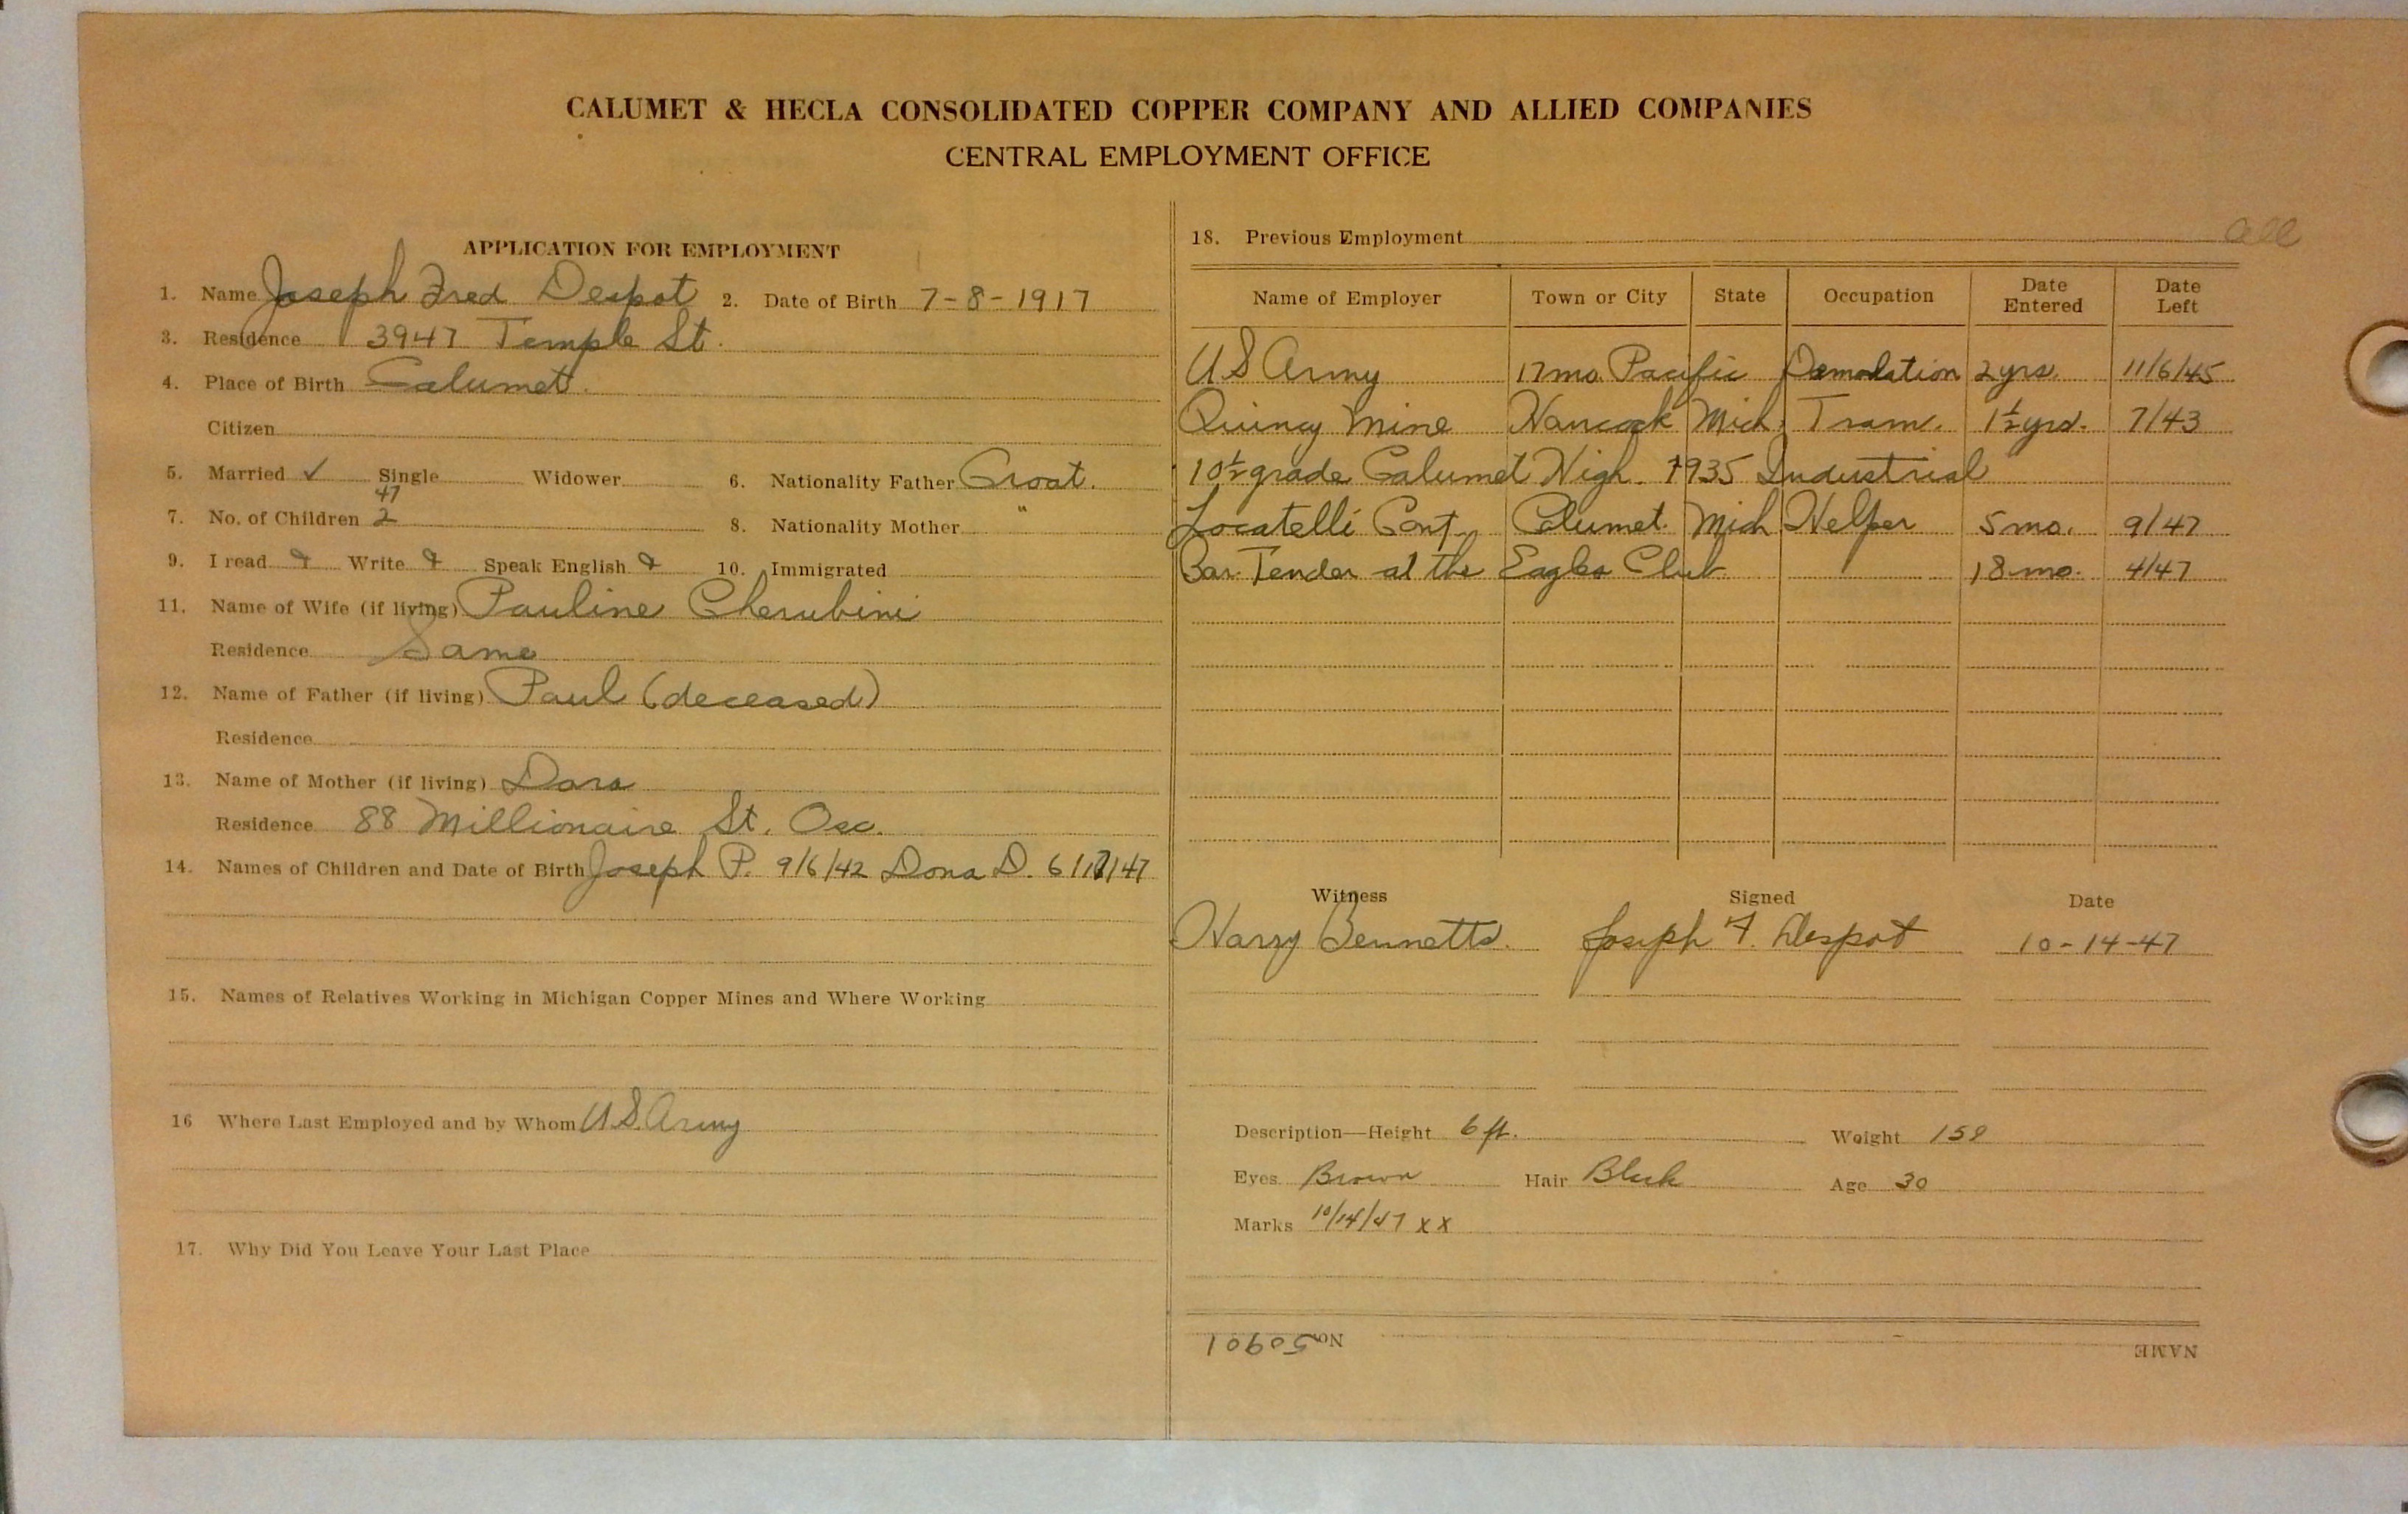 CALUMET & HECLA CONSOLIDATED COPPER COMPANY AND ALLIED COMPANIES
CENTRAL EMPLOYMENT OFFICE
APPLICATION FOR EMPLOYMENT
1. Name Joseph Fred Despot 2. Date of Birth 7-8-1917
3. Residence 3947 Temple St.
4. Place of Birth Calumet.
Citizen
5. Married ✓ Single Widower 6. Nationality Father Croat.
47
7. No. of Children 2 8. Nationality Mother "
9. I read Write Speak English 10. Immigrated
11. Name of Wife (if living) Pauline Cherubini
Residence Same
12. Name of Father (if living) Paul (deceased)
Residence
13. Name of Mother (if living) Dora
Residence 88 Millionaire St. Osc.
14. Names of Children and Date of Birth Joseph P. 9/6/42 Dona D. 6/17/47
15. Names of Relatives Working in Michigan Copper Mines and Where Working
16 Where Last Employed and by Whom U.S. Army
17. Why Did You Leave Your Last Place
18. Previous Employment all
Name of Employer Town or City State Occupation Date Entered Date Left
US Army 17 mo. Pacific Demolation 2 yrs. 11/6/45
Quincy Mine Hancock Mich. Tram. 1½ yrs. 7/43
10½ grade Calumet High. 1935 Industrial
Locatelli Cont. Calumet. Mich Helper 5 mo. 9/47
Bar Tender at the Eagles Club 18 mo. 4/47
Witness Signed Date
Harry Bennetts. Joseph F. Despot 10-14-47
Description—Height 6 ft. Weight 158
Eyes Brown Hair Black Age 30
Marks 10/14/47 x x
No. 50901 NAME